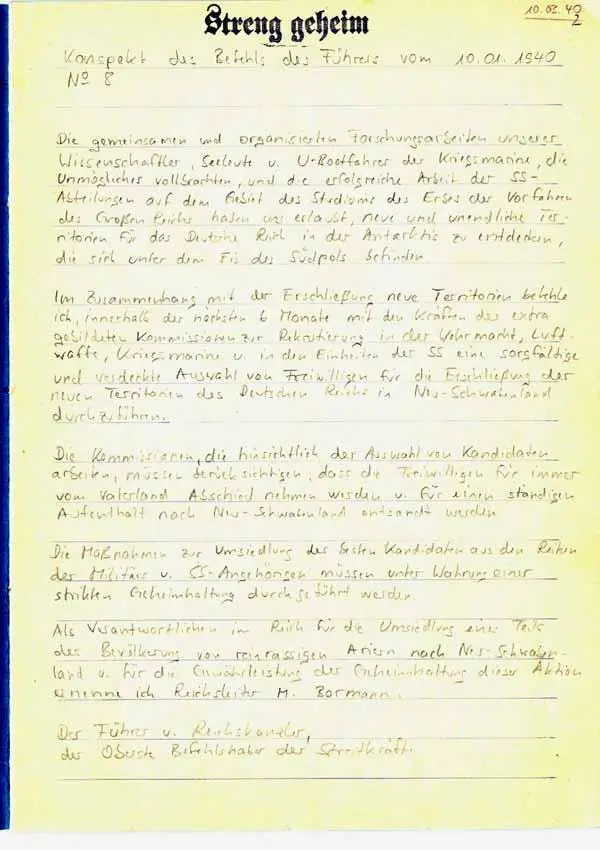 10.03.40
2
Streng geheim
Konspekt des Befehls des Führers vom 10.01.1940
No 8
Die gemeinsamen und organisierten Forschungsarbeiten unserer
Wissenschaftler, Seeleute u. U-Bootfahrer der Kriegsmarine, die
Unmögliches vollbrachten, und die erfolgreiche Arbeit der SS-
Abteilungen auf dem Gebiet des Studiums des Erbes der Vorfahren
des Großen Reichs haben uns erlaubt, neue und unendliche Ter-
ritorien für das Deutsche Reich in der Antarktis zu entdecken,
die sich unter dem Eis des Südpols befinden
Im Zusammenhang mit der Erschließung neue Territorien befehle
ich, innerhalb der nächsten 6 Monate mit den Kräften der extra
gebildeten Kommissionen zur Rekrutierung in der Wehrmacht, Luft-
waffe, Kriegsmarine u. in den Einheiten der SS eine sorgfältige
und verdeckte Auswahl von Freiwilligen für die Erschließung der
neuen Territorien des Deutschen Reichs in Neu-Schwabenland
durchzuführen.
Die Kommissionen, die hinsichtlich der Auswahl von Kandidaten
arbeiten, müssen berücksichtigen, dass die Freiwilligen für immer
vom Vaterland Abschied nehmen werden u. für einen ständigen
Aufenthalt nach Neu-Schwabenland entsandt werden
Die Maßnahmen zur Umsiedlung der besten Kandidaten aus den Reihen
der Militärs u. SS-Angehörigen müssen unter Wahrung einer
strikten Geheimhaltung durchgeführt werden.
Als Verantwortlichen im Reich für die Umsiedlung eines Teils
der Bevölkerung von reinrassigen Ariern nach Neu-Schwaben-
land u. für die Gewährleistung der Geheimhaltung dieser Aktion
ernenne ich Reichsleiter M. Bormann.
Der Führer u. Reichskanzler,
der Oberste Befehlshaber der Streitkräfte